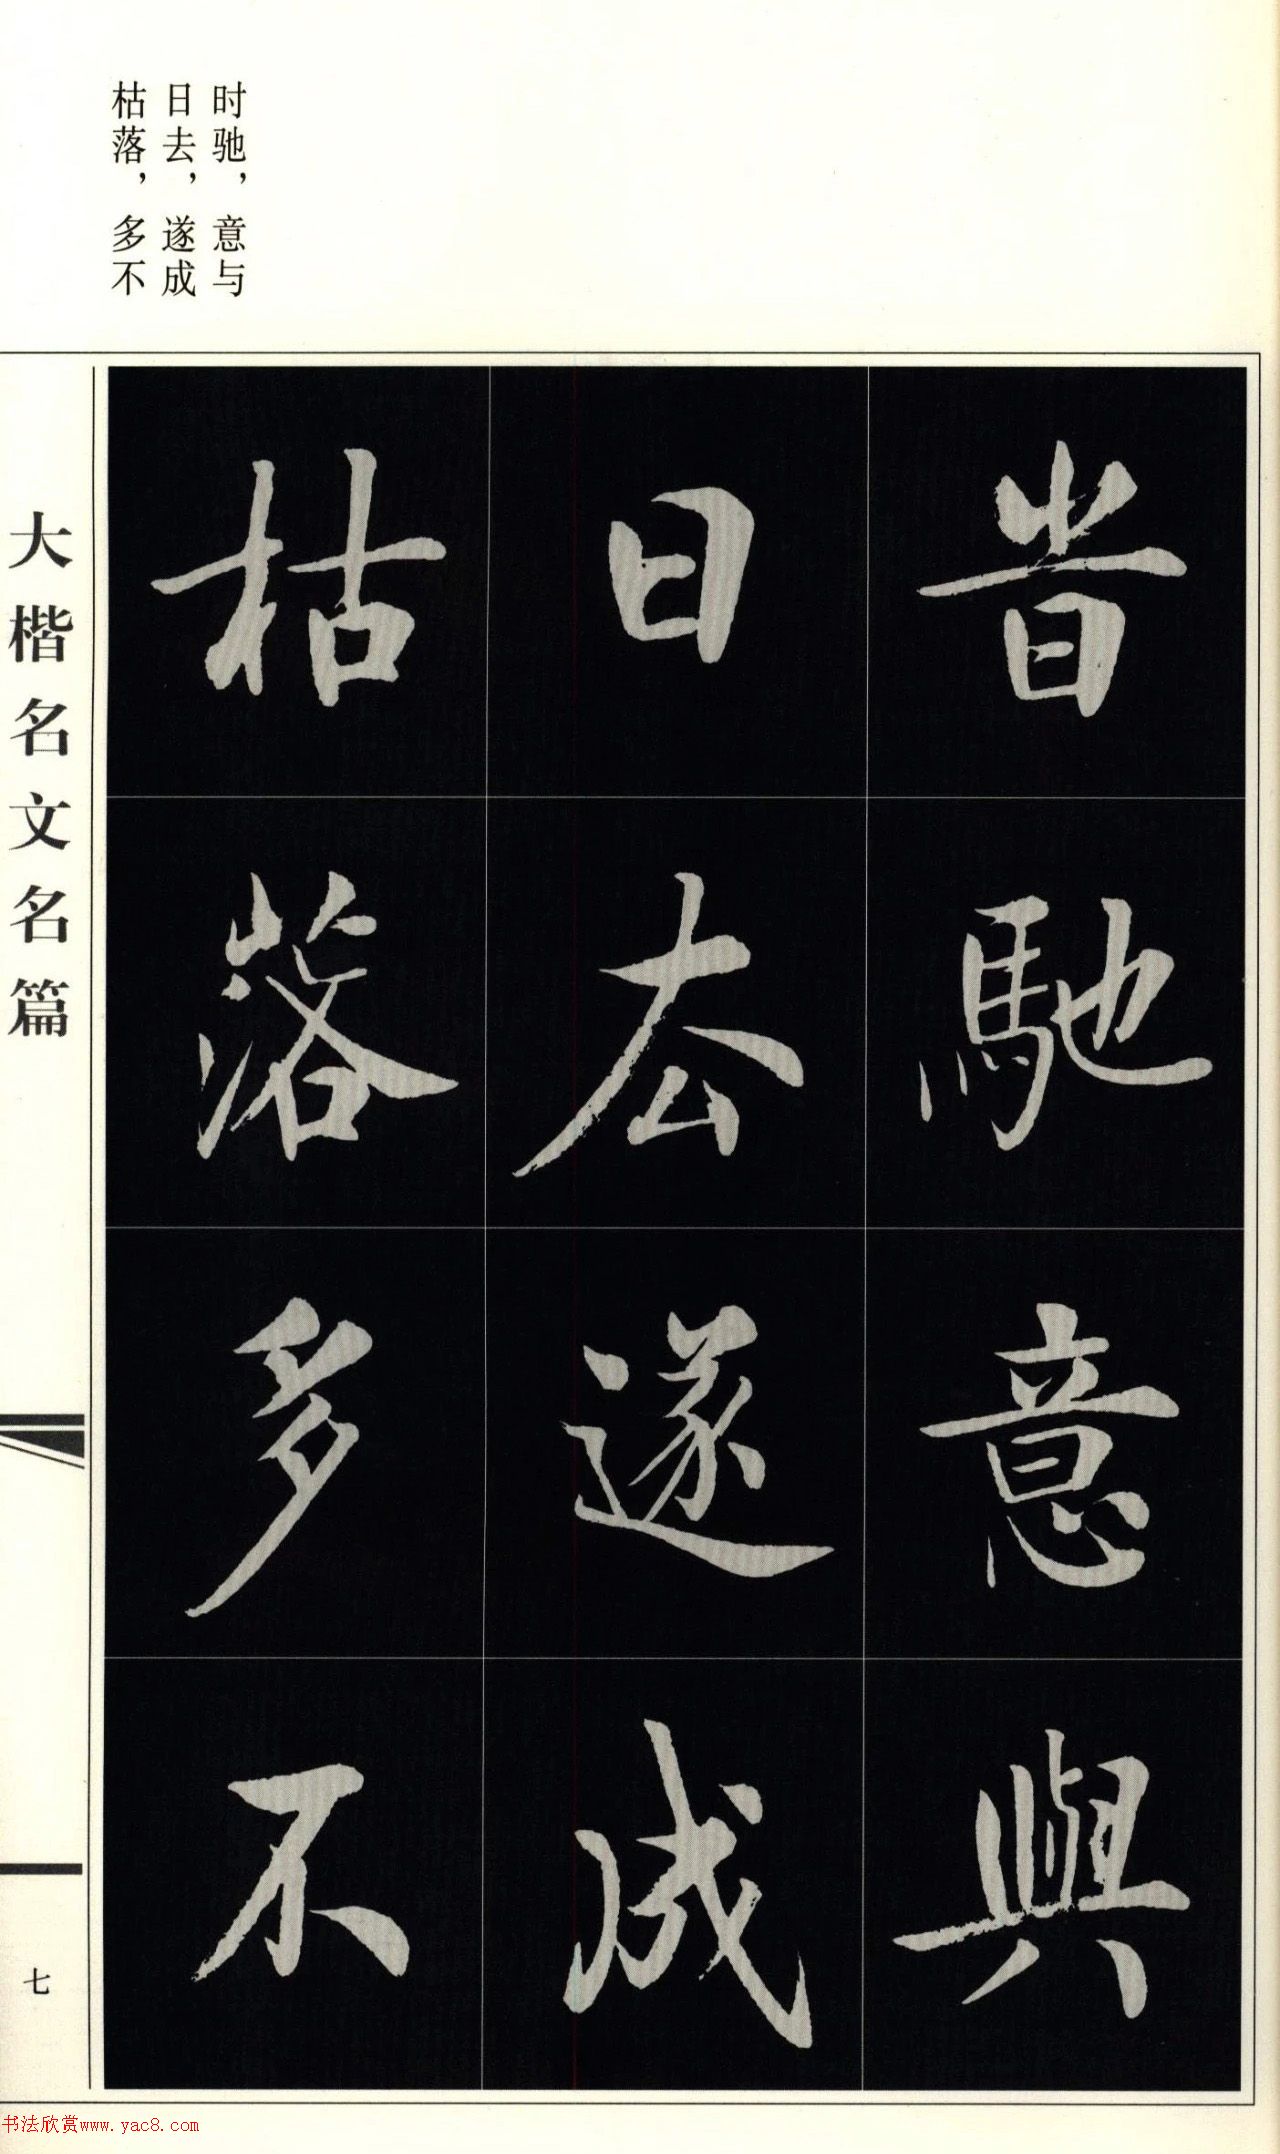 时驰，意与
日去，遂成
枯落，多不
旹馳意與
日去遂成
枯落多不
大楷名文名篇
七
书法欣赏www.yac8.com